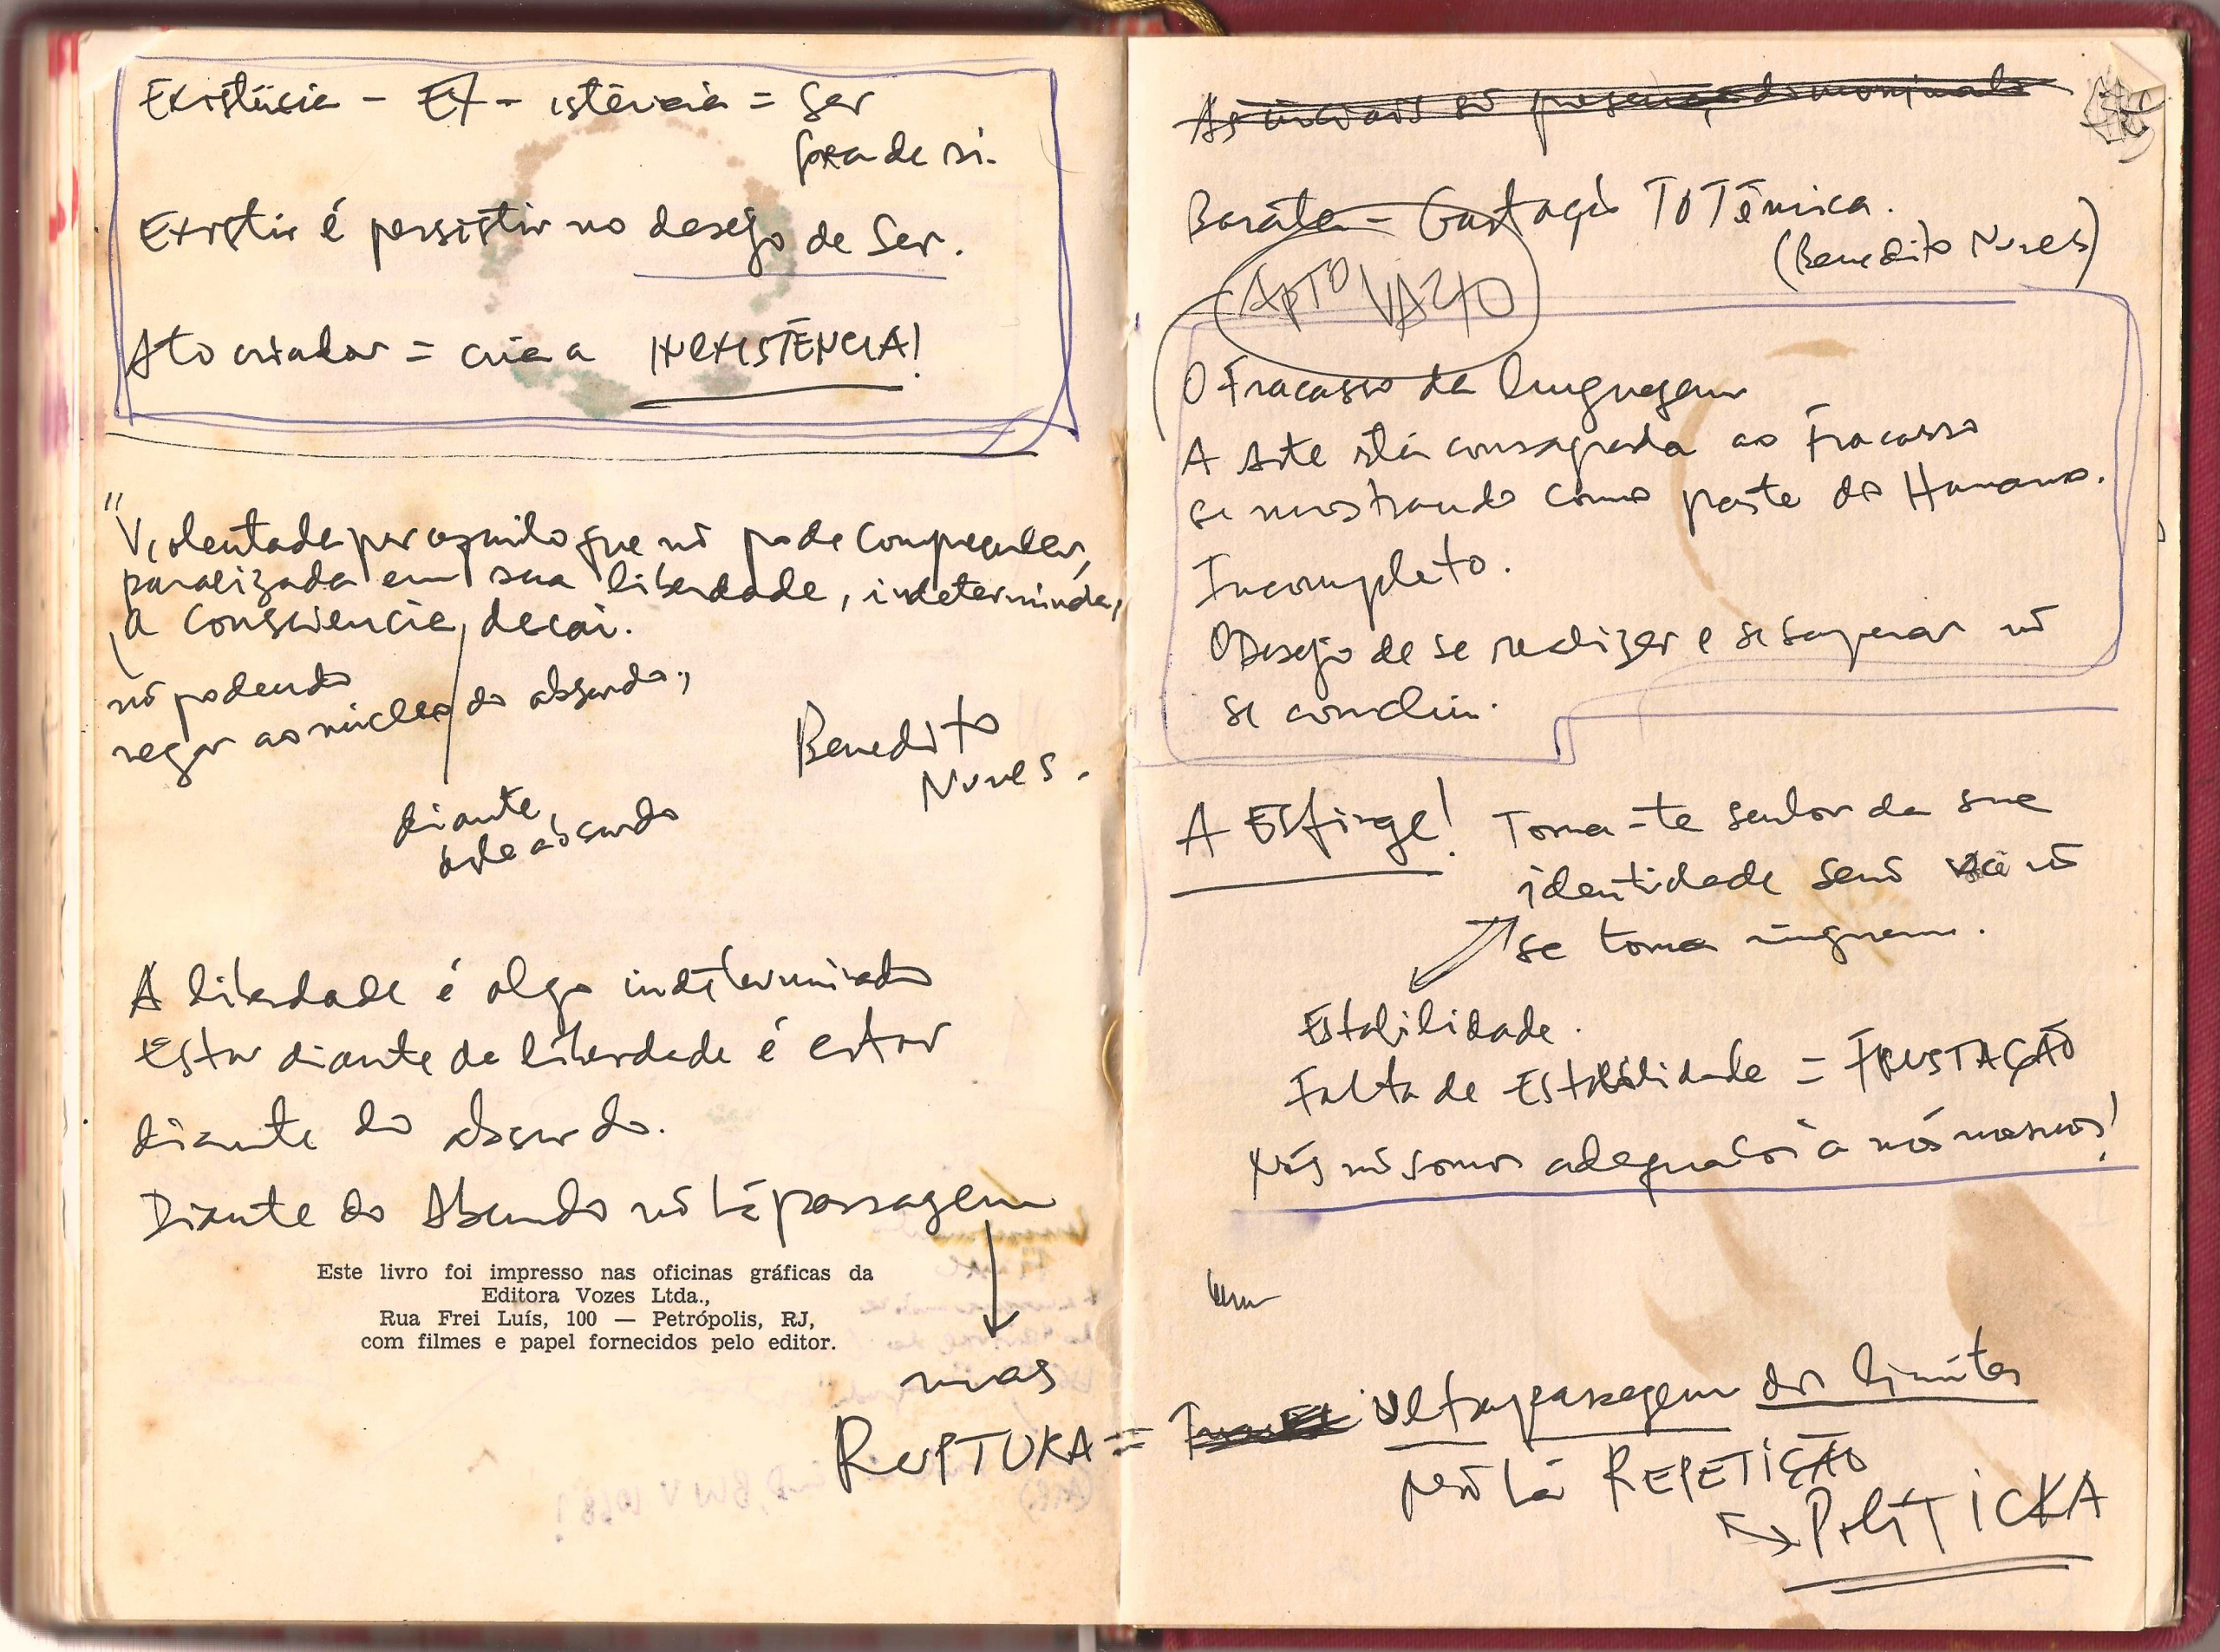 Existência - EX - istência = Ser
fora de si.
Existir é persistir no desejo de Ser.
Ato criador = cria a INEXISTÊNCIA!
"Violentada por aquilo que nõ pode compreender,
paralizada em sua liberdade, indeterminada,
a consciencia, decai.
nõ podendo
negar ao núcleo do absurdo,,
Benedito
Nunes.
diante,
deste absurdo
A liberdade é algo indeterminado
Estar diante da liberdade é estar
diante do absurdo.
Diante do Absurdo nõ há passagem
Este livro foi impresso nas oficinas gráficas da
Editora Vozes Ltda.,
Rua Frei Luís, 100 — Petrópolis, RJ,
com filmes e papel fornecidos pelo editor.
mas
RUPTURA = ultrapassagem dos limites
nõ há REPETIÇÃO
POLÍTICKA
Barata - TOTêmica.
(Benedito Nunes)
APTO VAZIO
O Fracasso da linguagem
A Arte está consagrada ao Fracasso
se mostrando como parte do Humano.
Incompleto.
O Desejo de se realizar e se superar nõ
se conclui.
A Esfinge! Torna-te senhor da sua
identidade senõ você nõ
se torna ninguem.
Estabilidade.
Falta de Estabilidade = FRUSTAÇÃO
Nós nõ somos adequados à nós mesmos!